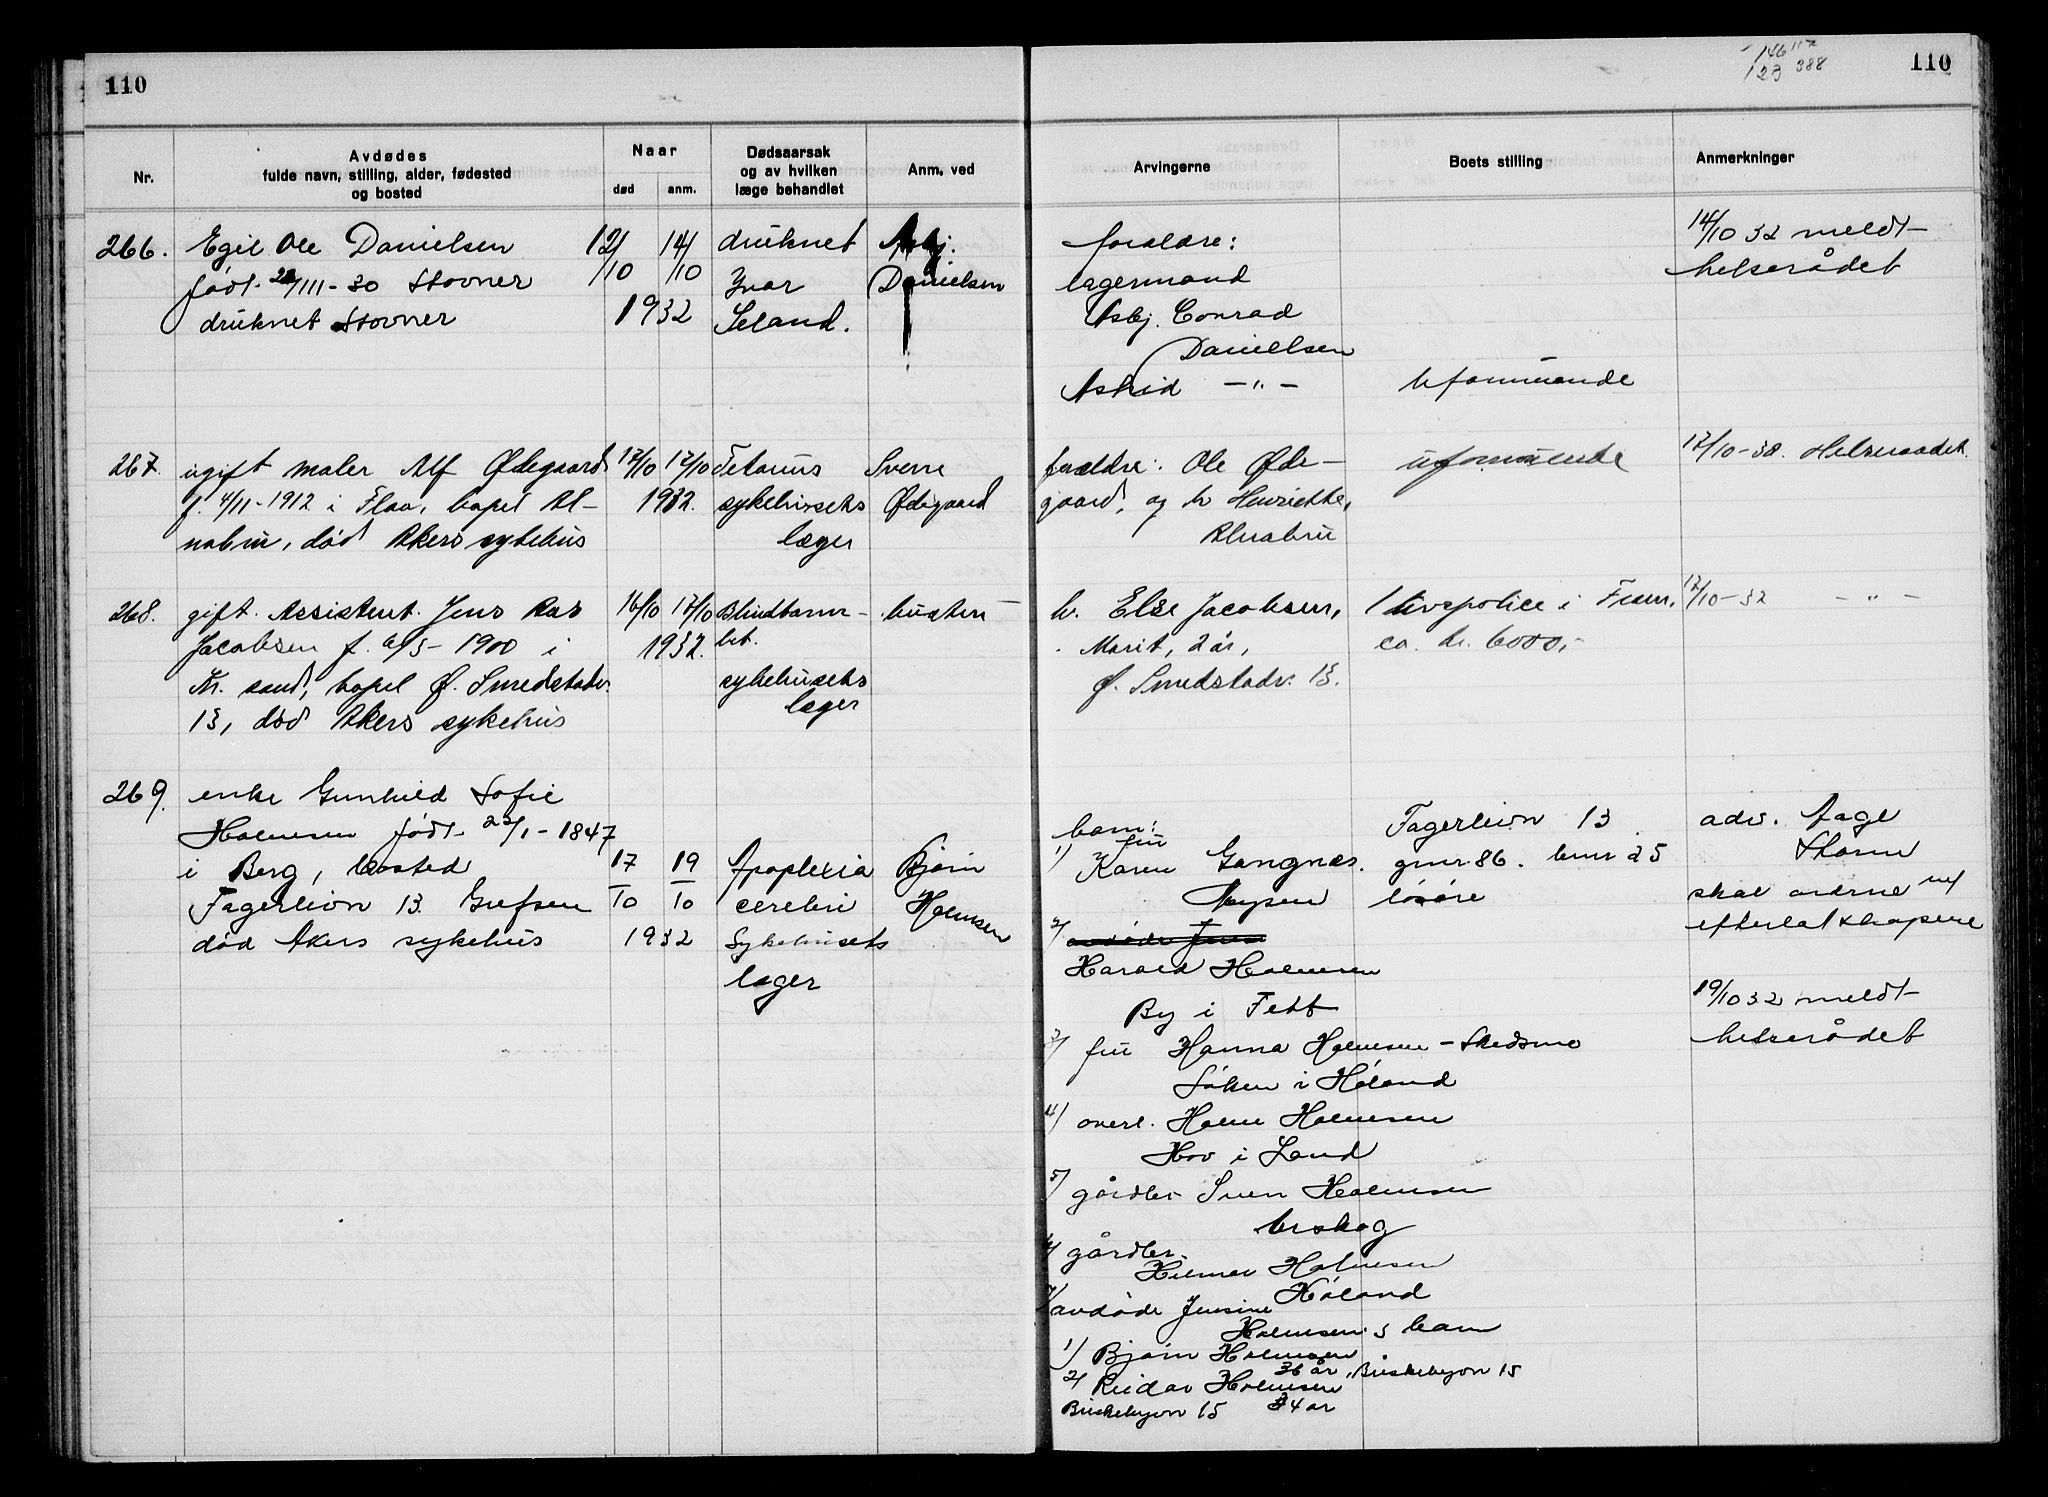 110
146 117
123 388
110
Nr.
Avdødes
fulde navn, stilling, alder, fødested
og bosted
Naar
død
anm.
Dødsaarsak
og av hvilken
læge behandlet
Anm. ved
Arvingerne
Boets stilling
Anmerkninger
266.
Egil Ole Danielsen
født /III-30 Stovner
druknet Stovner
12/10 14/10
1932
druknet
Ivar
Seland.
Asbj.
Danielsen
forældre:
lagermand
Asbj. Conrad
Daniellsen
Astrid — „ —
Uformuende
14/10 32 meldt
helserådet
267.
ugift maler Alf Ødegaard
f. 4/11-1912 i Flaa, bopel Al-
nabru, død Akers sykehus
17/10 17/10
1932.
Tetanus
sykehusets
læger
Sverre
Ødegaard
forældre: Ole Øde-
gaard, og h Henriette,
Alnabru
uformuende
17/10-32. Helseraadet.
268.
gift. Assistent. Jens Ras
Jacobsen f. 6/5-1900 i
Kr. sand, bopel Ø. Smedstadv.
13, død Akers sykehus
16/10 17/10
1932.
Blindtarm-
bet.
sykehusets
læger
hustru
h. Else Jacobsen,
Marit, 2 år,
Ø. Smedstadv. 13.
1 livspolice i Fram,
ca. kr. 6000,-
17/10-32 — „ —
269.
enke Gunhild Sofie
Holmsen født 22/1-1847
i Berg, bosted
Fagerlivn 13. Grefsen
død Akers sykehus
17/10 19/10
1932
Apoplexia
cerebri
Sykehusets
læger
Bjørn
Holmsen
barn:
fru
1) Karen Gangnes.
Mysen
2) avdøde Jens
Harald Holmsen
By i Fett
3) fru Hanna Holmsen-Skedsmo
Løken i Høland
4) overl. Holm Holmsen
Hov i Land
5) gårdbr Sven Holmsen
Urskog
6) gårdbr.
Hilmar Holmsen
Høland
7) avdøde Jensine
Holmsen's barn
1) Bjørn Holmsen
36 år, Briskebyvn 15
2) Reidar Holmsen
Briskebyvn 15 34 år
Fagerlivn 13
gnr 86. bnr 25
løsøre
adv. Aage
skal ordne m/
efterlatskapene
19/10 32 meldt
helserådet